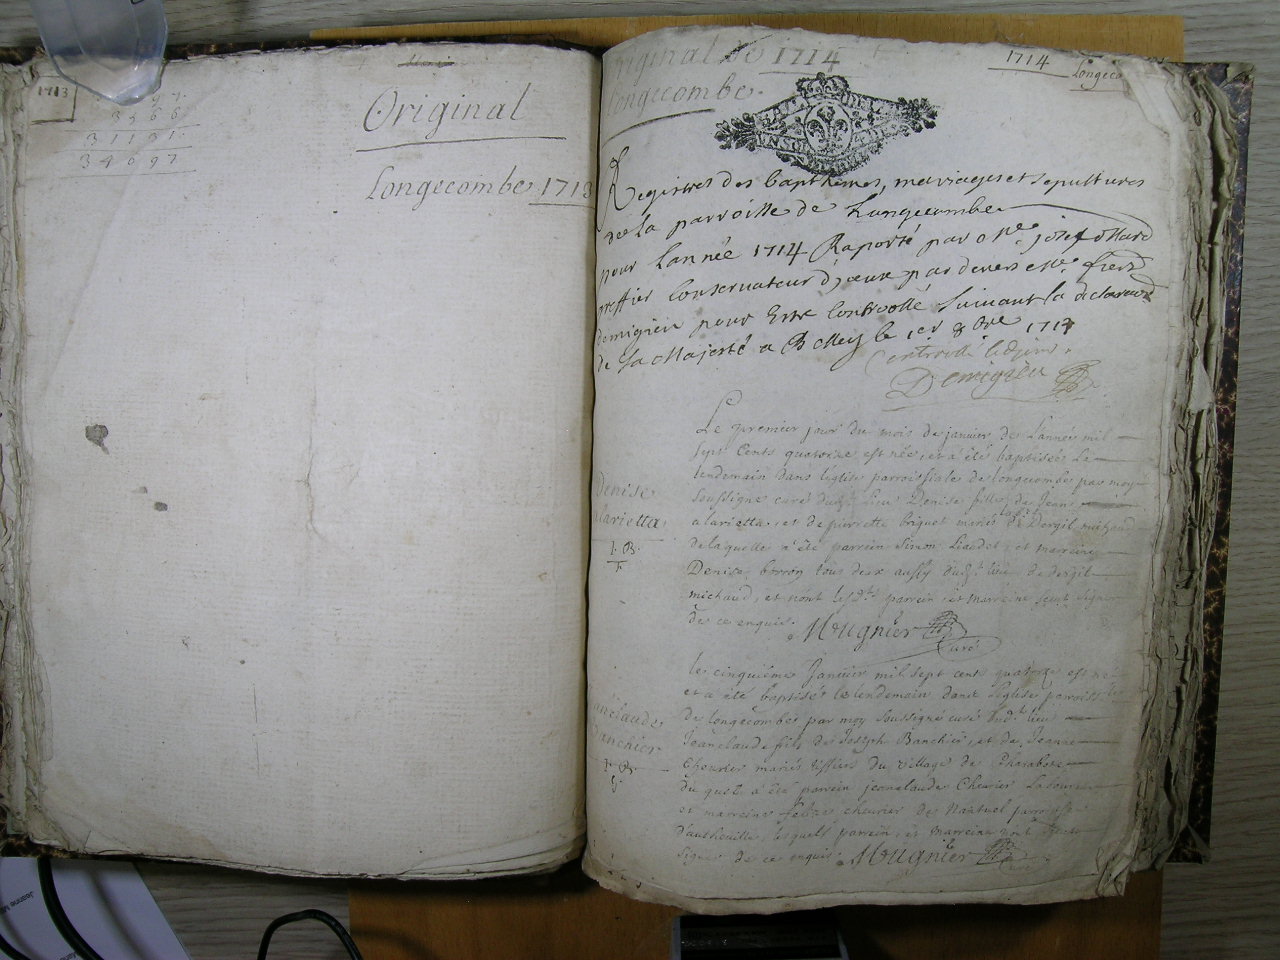 1713
3466
31131
34697
Original
Longecombe 1713
Original de 1714
Longecombe
1714
Longeco
Registres des bapthemes, mariages et sepultures
de la parroisse de Longecombe
pour Lannée 1714 Raporté par Me josef
greffier Conservateur d'jceux par devers Me
demigieu pour Estre Controollé suivant la declaraon
de Sa Majesté a Belley le 1er 8bre 1713
Controllé
Demigieu
Le premier jour du mois de janvier de L'année mil
sept cents quatorze est née, et a été baptisée le
lendemain dans l'église parroissiale de longecombe par moy
soussigné curé dudt lieu Denise fille de Jean
alarietta, et de pierrette briguet mariés de Dergil michaud
de laquelle a été parrein Simon Liaudet, et marreine
Denise borron tous deux aussy dudt lieu de dergil
michaud, et n'ont lesdts parrein, et marreine sceut signer
de ce enquis. Mugnier
curé
Denise
alarietta
1. B.
F.
le cinquiéme Janvier mil sept cent quatorze est né
et a été baptisé le lendemain dans l'église parroissle
de longecombe par moy soussigné curé dudt lieu
Jeanclaude fils de Joseph Banchier, et de Jeanne
Chevrier mariés du village de Charabote
du quel a été parrein jeanclaude Chevrier Laboureur
et marreine chevrier de Nantuel parroisse
d'autheuille, lesquels parrein, et marreine n'ont sceut
signer de ce enquis. Mugnier
curé
Jeanclaude
Banchier
1. B.
G.